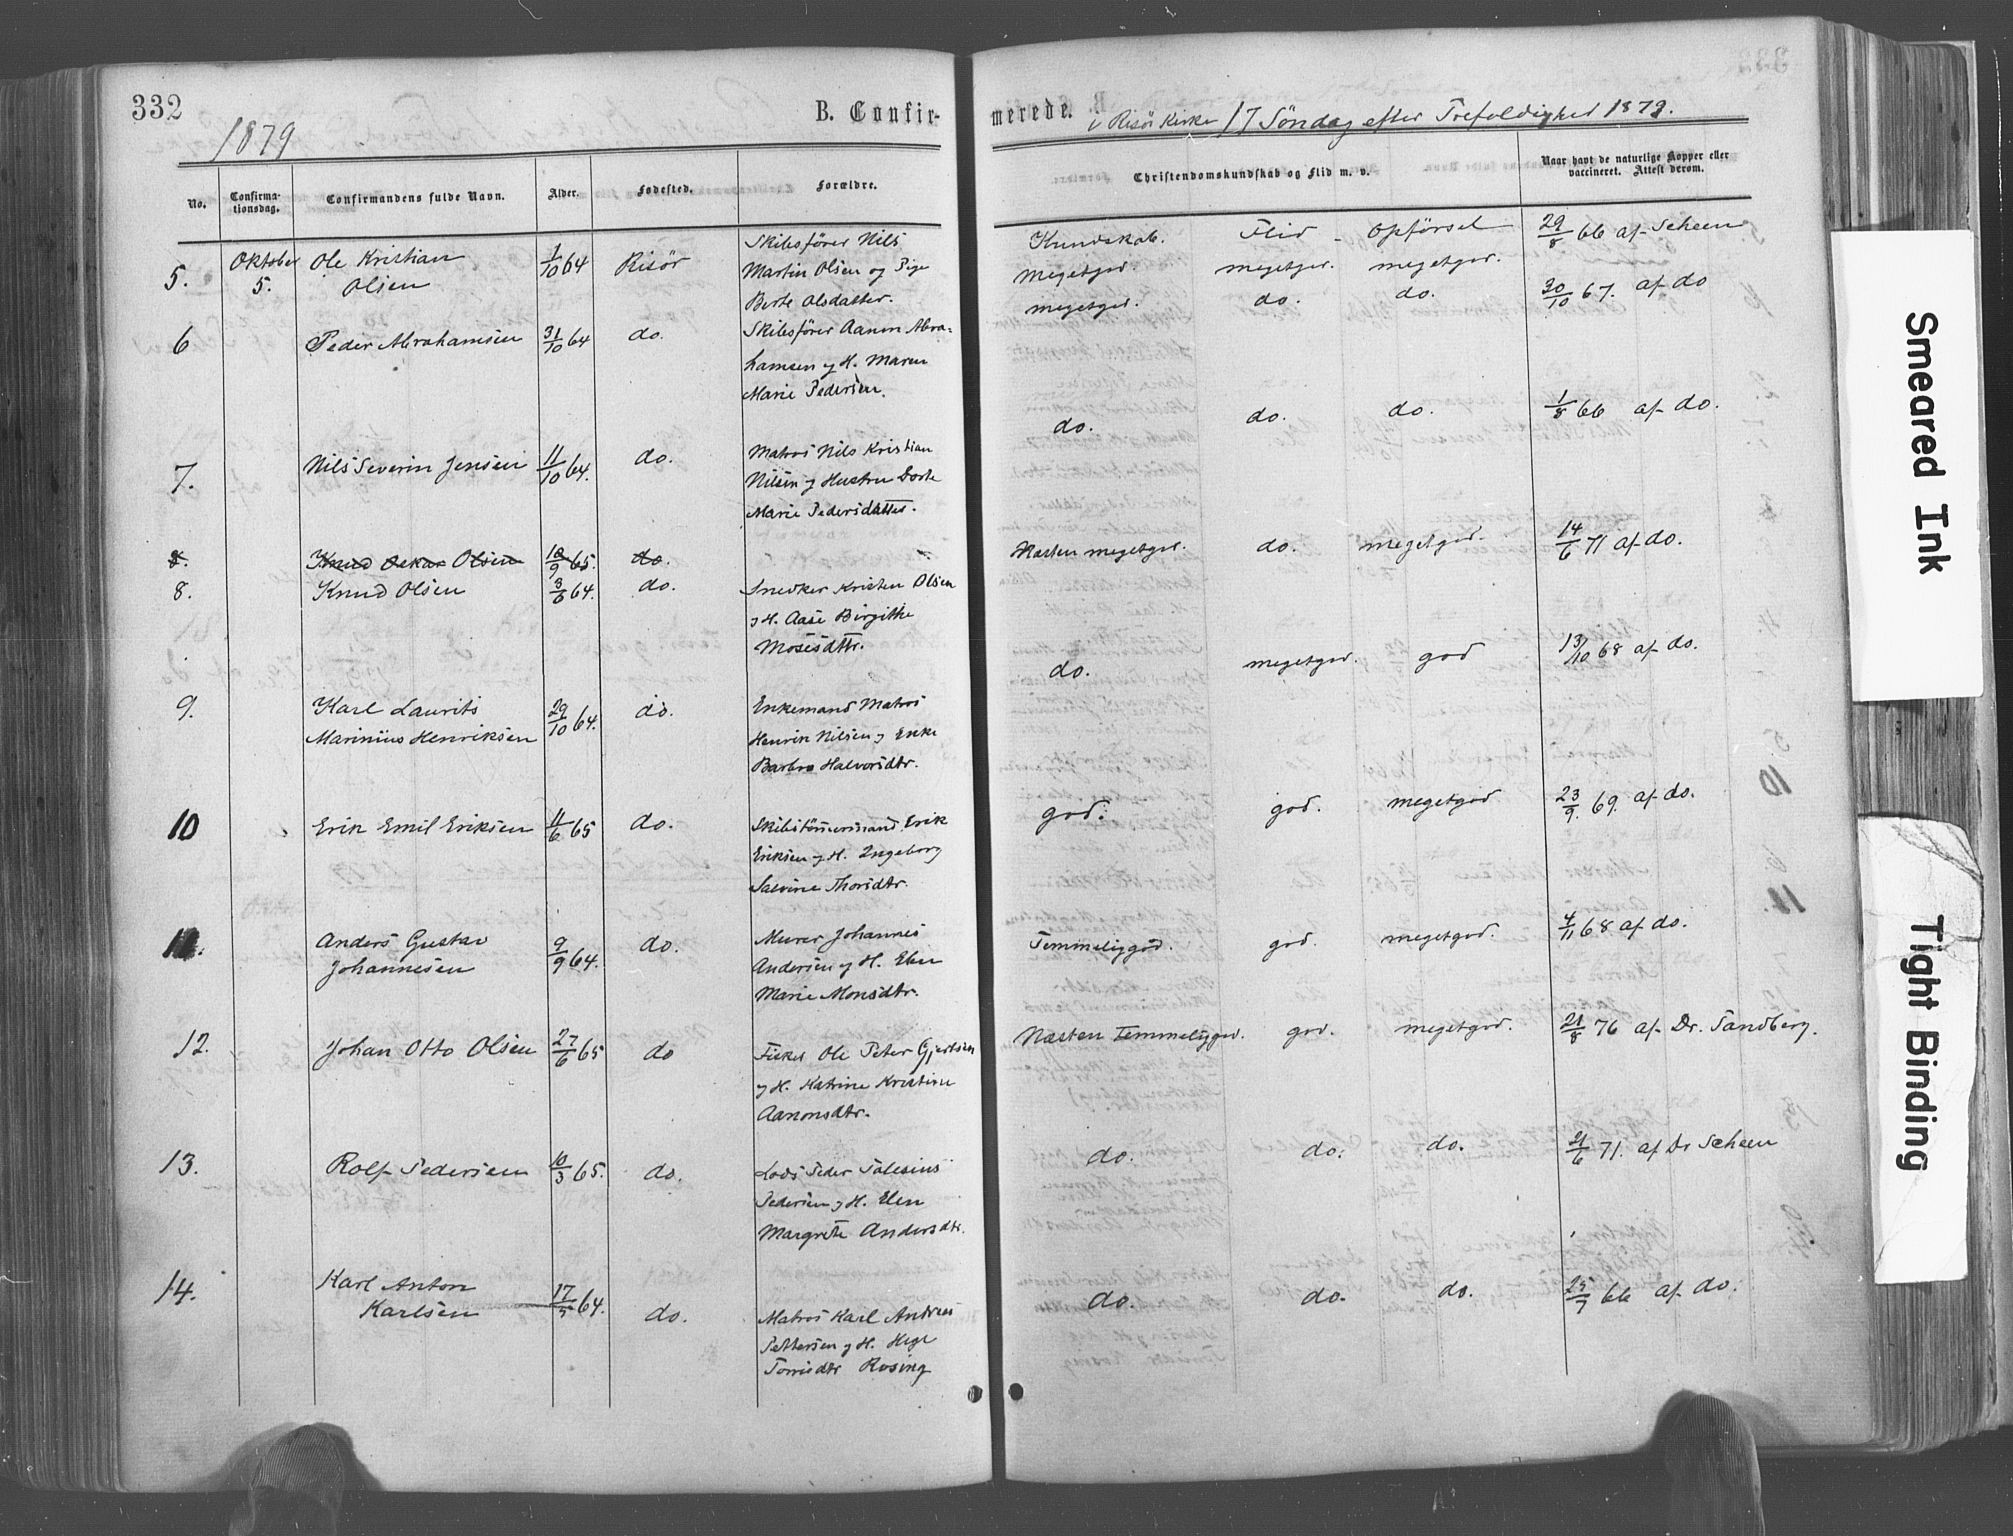 332
1879
B. Confirmerede. i Risör Kirke 17 Söndag efter Trefoldighed 1879.
No. Confirmationsdag. Confirmandens fulde Navn. Alder. Fødested. Forældre. Christendomskundskab og Flid m. v. Naar havt de naturlige Kopper eller vaccineret. Attest derom.
Kundskab. Flid - Opförsel
5. Oktober 5. Ole Kristian Olsen 1/10 64 Risör Skibsförer Nils Martin Olsen og Pige Berte Olsdatter. Megetgod. megetgod. megetgod. 29/8 66 af Scheen
6 Peder Abrahamsen 31/10 64 do. Skibsförer Aanon Abrahamsen og H. Maren Marie Pedersen. megetgod. do. do. 30/10 67. af do
7. Nils Severin Jensen 11/10 64. do. Matros Nils Kristian Nilsen og Hustru Dorte Marie Pedersdatter. do. do. do. 1/8 66 af do.
8. Knud Oskar Olsen 18/9 65. do.
8. Knud Olsen 3/6 64. do. Snedker Kristen Olsen og H. Aase Birgithe Mosesdttr. Næsten megetgod. do. megetgod. 14/6 71 af do.
9. Karl Laurits Marinius Henriksen 29/10 64. do. Enkemand Matros Henrik Nilsen og Enke Barbro Halvorsdtr. do. megetgod. god 13/10 68 af do.
10 Erik Emil Eriksen 11/6 65 do. Skibstömmermand Erik Eriksen og H. Ingeborg Salvine Thorsdtr. god. god. megetgod 23/9. 69. af do.
11. Anders Gustav Johannesen 9/9 64. do. Murer Johannes Andersen og H. Elen Marie Monsdtr. Temmeliggod. god. megetgod. 4/11 68 af do.
12. Johan Otto Olsen 27/6 65 do Fisker Ole Peter Gjertsen og H. Katrine Kristine Aanonsdtr. Næsten Temmeliggod. god. megetgod. 21/8 76 af Dr. Sandberg.
13. Rolf Pedersen 10/3 65. do. Lods Peder Salesius Pedersen og H. Elen Margrete Andersdtr. do. do. do. 21/6 71. af Dr Scheen
14. Karl Anton Karlsen 17/5 64. do. Matros Karl Andreas Pettersen og H. Hege Torrisdtr Rosing do. do. do. 25/7 66 af do.
Smeared Ink
Tight Binding